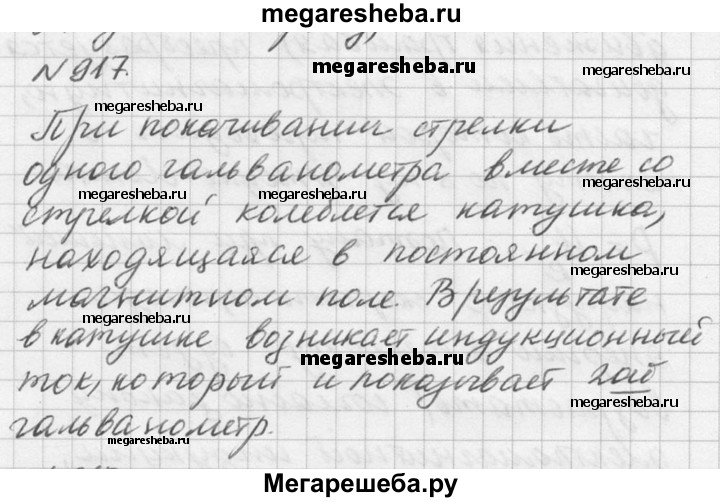 megaresheba.ru
№917.
megaresheba.ru
megaresheba.ru
megaresheba.ru
При покачивании стрелки
одного гальванометра вместе со
megaresheba.ru
megaresheba.ru
megaresheba.ru
стрелкой колеблется катушка,
находящаяся в постоянном
megaresheba.ru
магнитном поле. В результате
megaresheba.ru
в катушке возникает индукционный
megaresheba.ru
ток, который и показывает 2ой
megaresheba.ru
гальванометр.
megaresheba.ru
Мегарешеба.ру